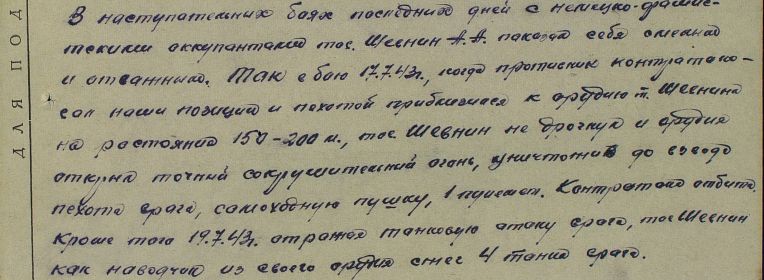 ДЛЯ ПОД
В наступательных боях последних дней с немецко-фашис-
тскими оккупантами тов. Шевнин А.А. показал себя смелым
и отважным. Так в бою 17.7.43г., когда противник контратако-
вал наши позиции и пехотой приблизился к орудию т. Шевнина
на растояния 150-200 м., тов. Шевнин не дрогнул и орудия
открыл точный сокрушительный огонь, уничтожив до взвода
пехоты врага, самоходную пушку, 1 пулемет. Контратака отбита.
Кроме того 19.7.43г. отражая танковую атаку врага, тов. Шевнин
как наводчик из своего орудия сжег 4 танка врага.